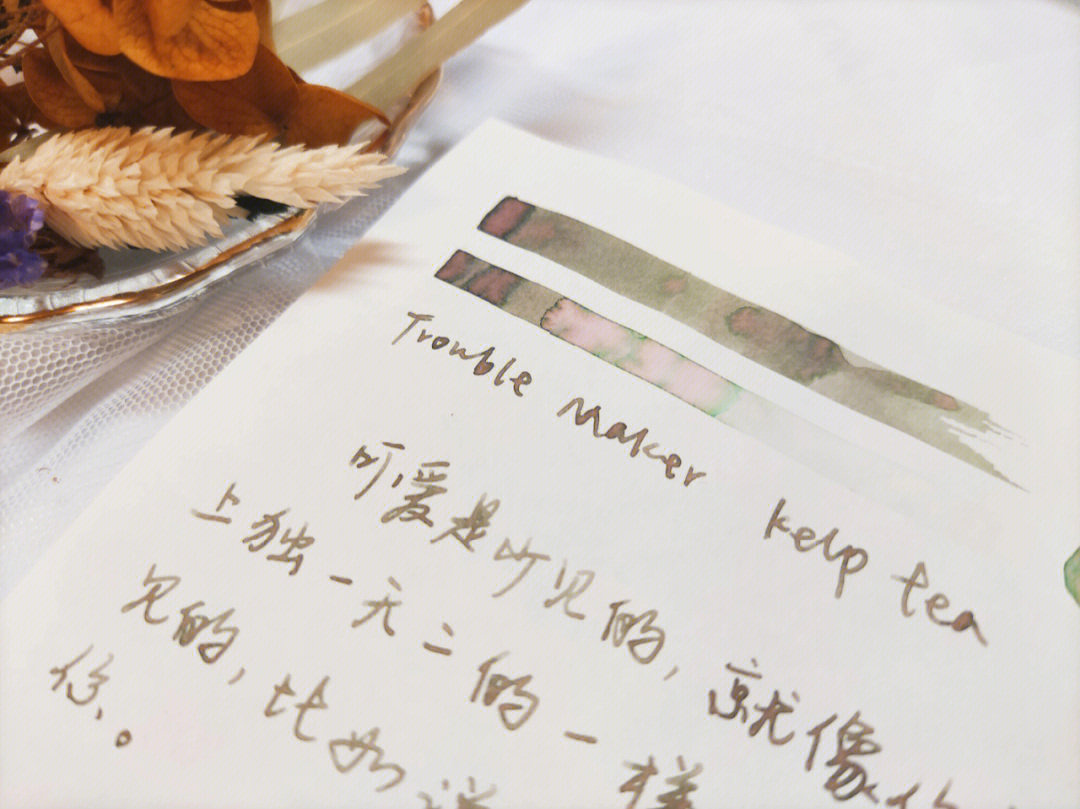 Trouble Maker kelp tea
可爱是少见的,就像
上独一无二的一样
的,比如
你。